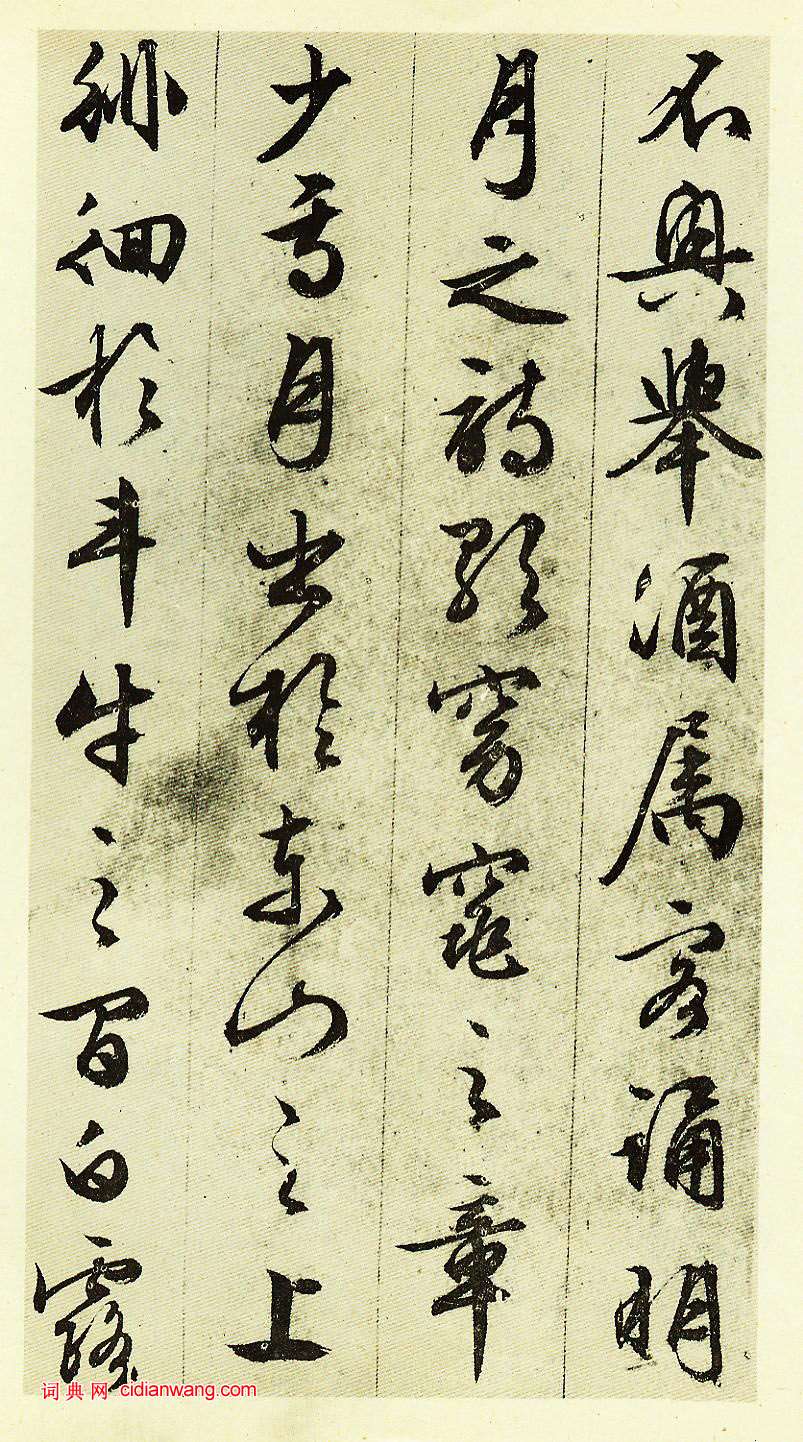 不興舉酒属客誦明
月之詩歌窈窕之章
少焉月出於東山之上
徘徊於斗牛之間白露
词典网 cidianwang.com